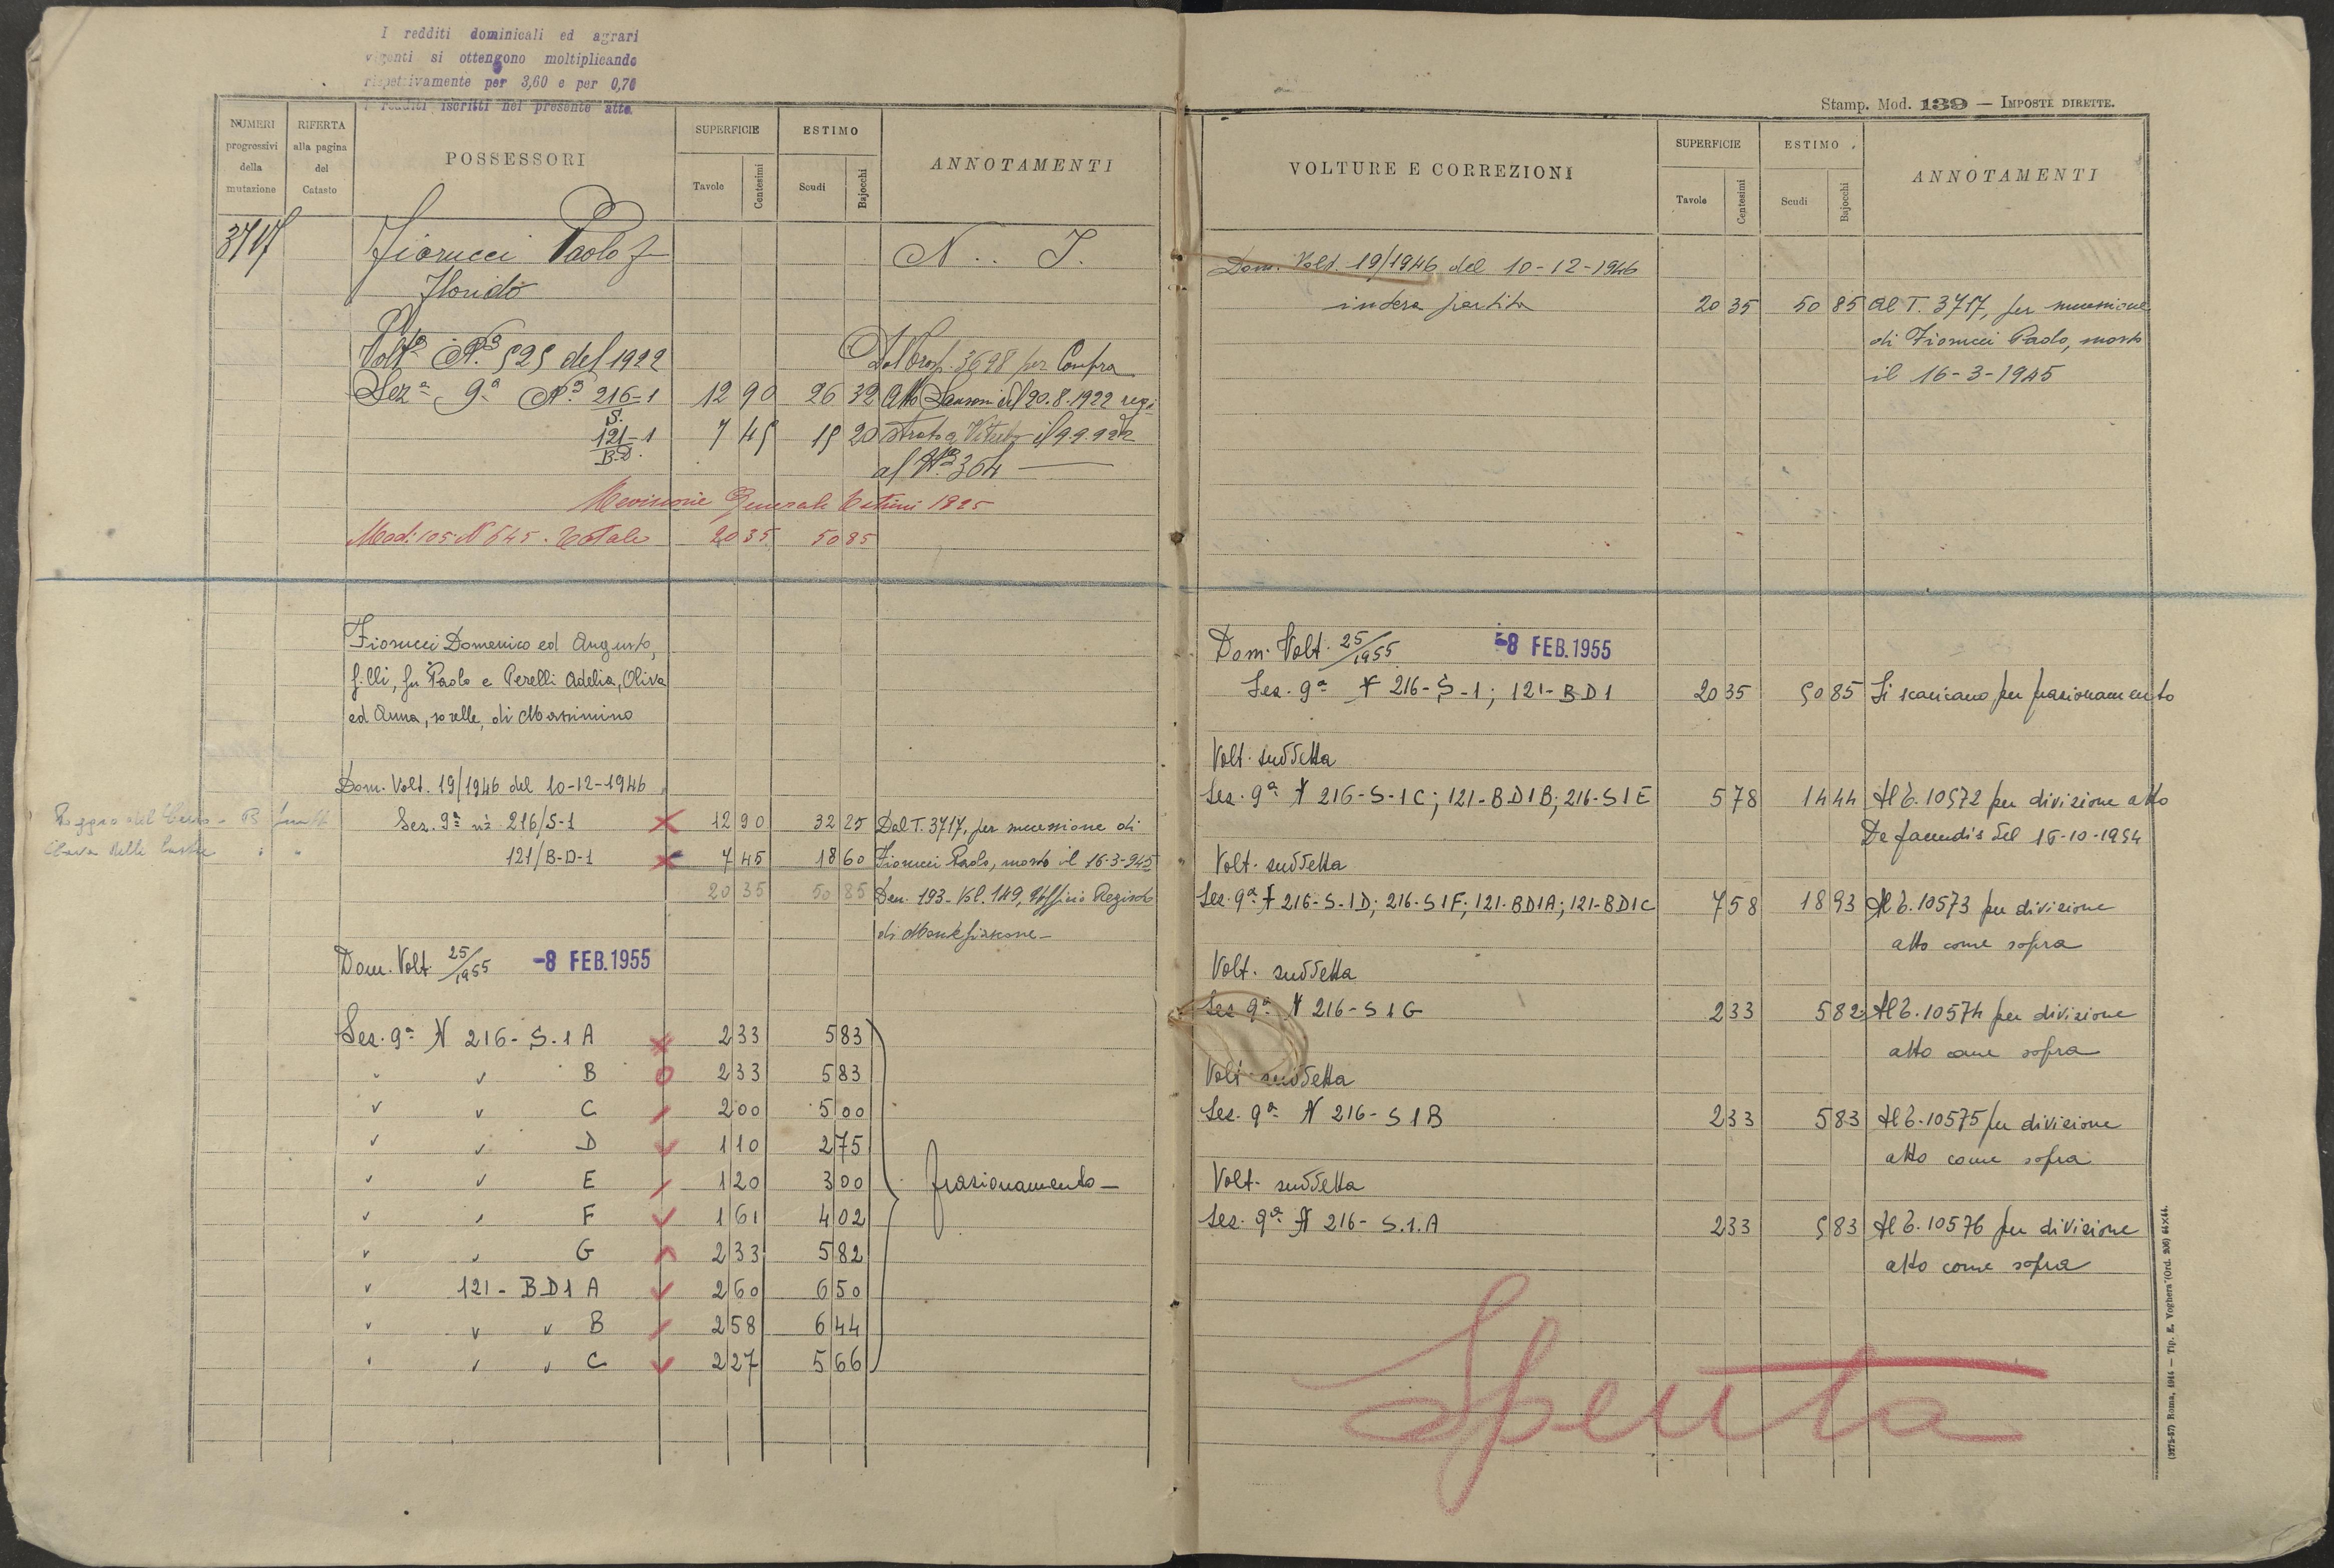 I redditi dominicali ed agrari
vigenti si ottengono moltiplicando
rispettivamente per 3,60 e per 0,70
i redditi iscritti nel presente atto.
NUMERI progressivi della mutazione
RIFERTA alla pagina del Catasto
POSSESSORI
SUPERFICIE
Tavole Centesimi
ESTIMO
Scudi Bajocchi
ANNOTAMENTI
3717 Fiorucci Paolo f N.. T.
Florido
Volt.ª N.º 525 del 1922 Dal Prosp. 3698 per Compra
Sez.ª 9ª Nº 216-1 12 90 26 32 Atto del 20.8.1922 regi
S.
121-1 7 45 15 20 strato a Viterbo il 9.9.922
B-D.
al Nº 364
Revisione Generale Estimi 1925
Mod: 105 N 645. Totale 20 35 50 85
Fiorucci Domenico ed Augusto,
f.lli, fu Paolo e Perelli Adelia, Oliva
ed Anna, sorelle, di Massimino
Dom. Volt. 19/1946 del 10-12-1946
Sez. 9ª nº 216/S-1 12 90 32 25 Dal T. 3717, per successione di
121/B-D-1 7 45 18 60 Fiorucci Paolo, morto il 16-3-945
20 35 50 85 Den. 193-Vol. 149, Ufficio Registro
di Montefiascone-
Dom. Volt. 25/1955 -8 FEB. 1955
Sez. 9ª N 216-S.1 A 2 33 5 83
" " B 2 33 5 83
" " C 2 00 5 00
" " D 1 10 2 75
" " E 1 20 3 00 frazionamento-
" " F 1 61 4 02
" " G 2 33 5 82
" 121-BD1 A 2 60 6 50
" " " B 2 58 6 44
" " " C 2 27 5 66
Stamp. Mod. 139 — IMPOSTE DIRETTE.
VOLTURE E CORREZIONI
SUPERFICIE
Tavole Centesimi
ESTIMO
Scudi Bajocchi
ANNOTAMENTI
Dom. Volt. 19/1946 del 10-12-1946
intera partita 20 35 50 85 Al T. 3717, per successione
di Fiorucci Paolo, morto
il 16-3-1945
Dom. Volt. 25/1955 -8 FEB. 1955
Sez. 9ª N 216-S-1; 121-BD1 20 35 50 85 Si scaricano per frazionamento
Volt. suddetta
Sez. 9ª N 216-S-1C; 121-BD1B; 216-S1E 5 78 14 44 Al T. 10572 per divizione atto
De facendis del 16-10-1954
Volt. suddetta
Sez. 9ª N 216-S-1D; 216-S1F; 121-BD1A; 121-BD1C 7 58 18 93 Al T. 10573 per divizione
atto come sopra
Volt. suddetta
Sez 9ª N 216-S1G 2 33 5 82 Al T. 10574 per divizione
atto come sopra
Volt suddetta
Sez. 9ª N 216-S1B 2 33 5 83 Al T. 10575 per divizione
atto come sopra
Volt. suddetta
Sez. 9ª N 216-S.1.A 2 33 5 83 Al T. 10576 per divizione
atto come sopra
Spenta
(3275-57) Roma, 1914 — Tip. E. Voghera (Ord. 206) 64×44.